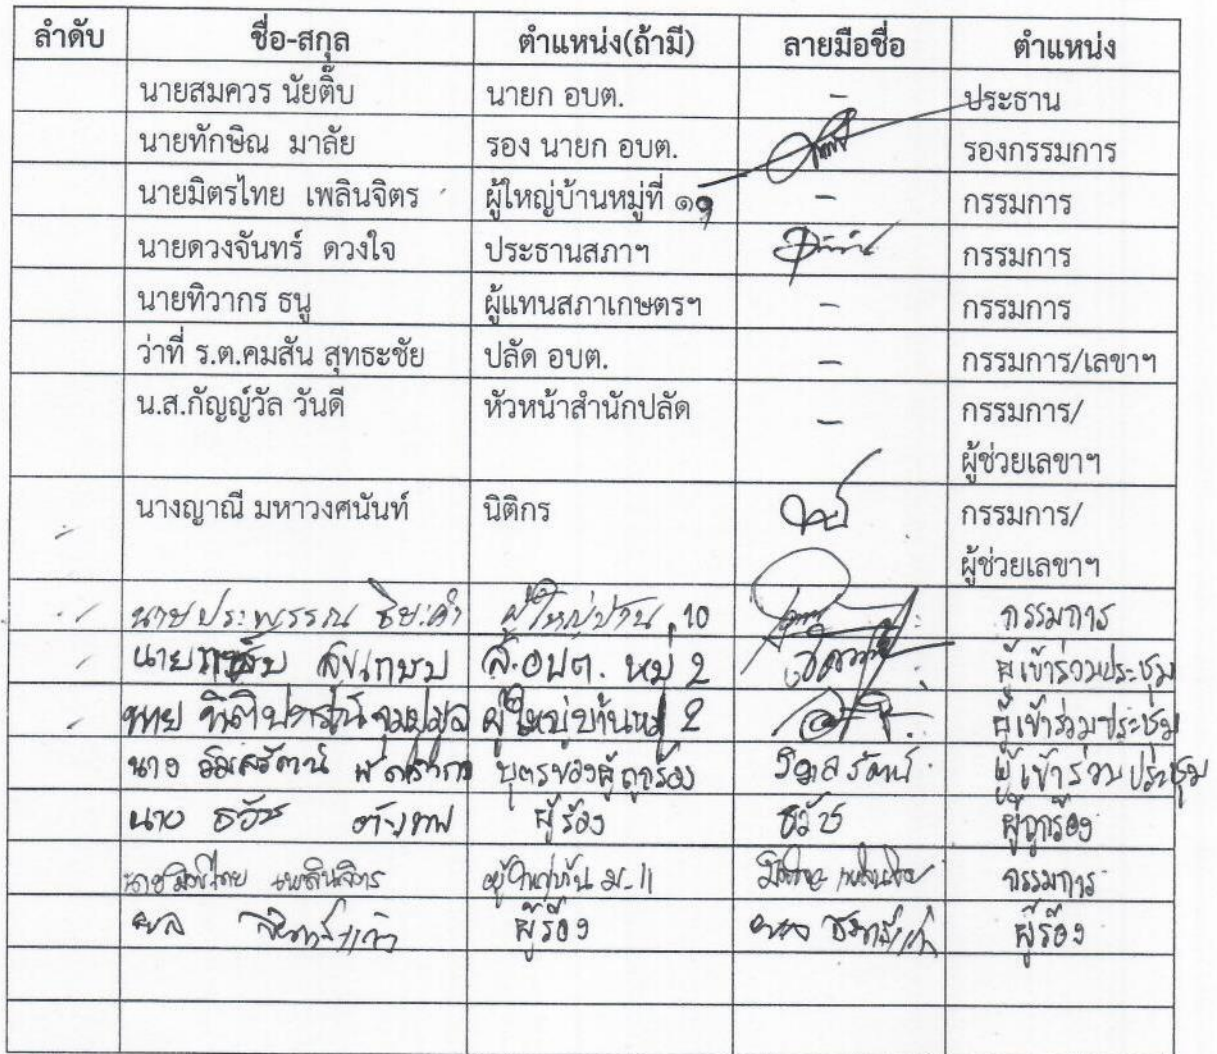 ลำดับ ชื่อ-สกุล ตำแหน่ง(ถ้ามี) ลายมือชื่อ ตำแหน่ง
นายสมควร นัยติ๊บ นายก อบต. - ประธาน
นายทักษิณ มาลัย รอง นายก อบต. รองกรรมการ
นายมิตรไทย เพลินจิตร ผู้ใหญ่บ้านหมู่ที่ ๑๑ - กรรมการ
นายดวงจันทร์ ดวงใจ ประธานสภาฯ กรรมการ
นายทิวากร ธนู ผู้แทนสภาเกษตรฯ - กรรมการ
ว่าที่ ร.ต.คมสัน สุทธะชัย ปลัด อบต. - กรรมการ/เลขาฯ
น.ส.กัญญ์วัล วันดี หัวหน้าสำนักปลัด - กรรมการ/
ผู้ช่วยเลขาฯ
นางญาณี มหาวงศนันท์ นิติกร กรรมการ/
ผู้ช่วยเลขาฯ
ผู้ใหญ่บ้าน 10 กรรมการ
นาย ส.อบต. หมู่ 2 ผู้เข้าร่วมประชุม
นาย ผู้ใหญ่บ้านหมู่ 2 ผู้เข้าร่วมประชุม
นาง วิมลรัตน์ บุตรของผู้ถูกร้อง วิมลรัตน์ ผู้เข้าร่วมประชุม
นาย ธวัช ผู้ร้อง ธวัช ผู้ถูกร้อง
นายมิตรไทย เพลินจิตร ผู้ใหญ่บ้าน ม.11 มิตรไทย เพลินจิตร กรรมการ
ผู้ร้อง ผู้ร้อง